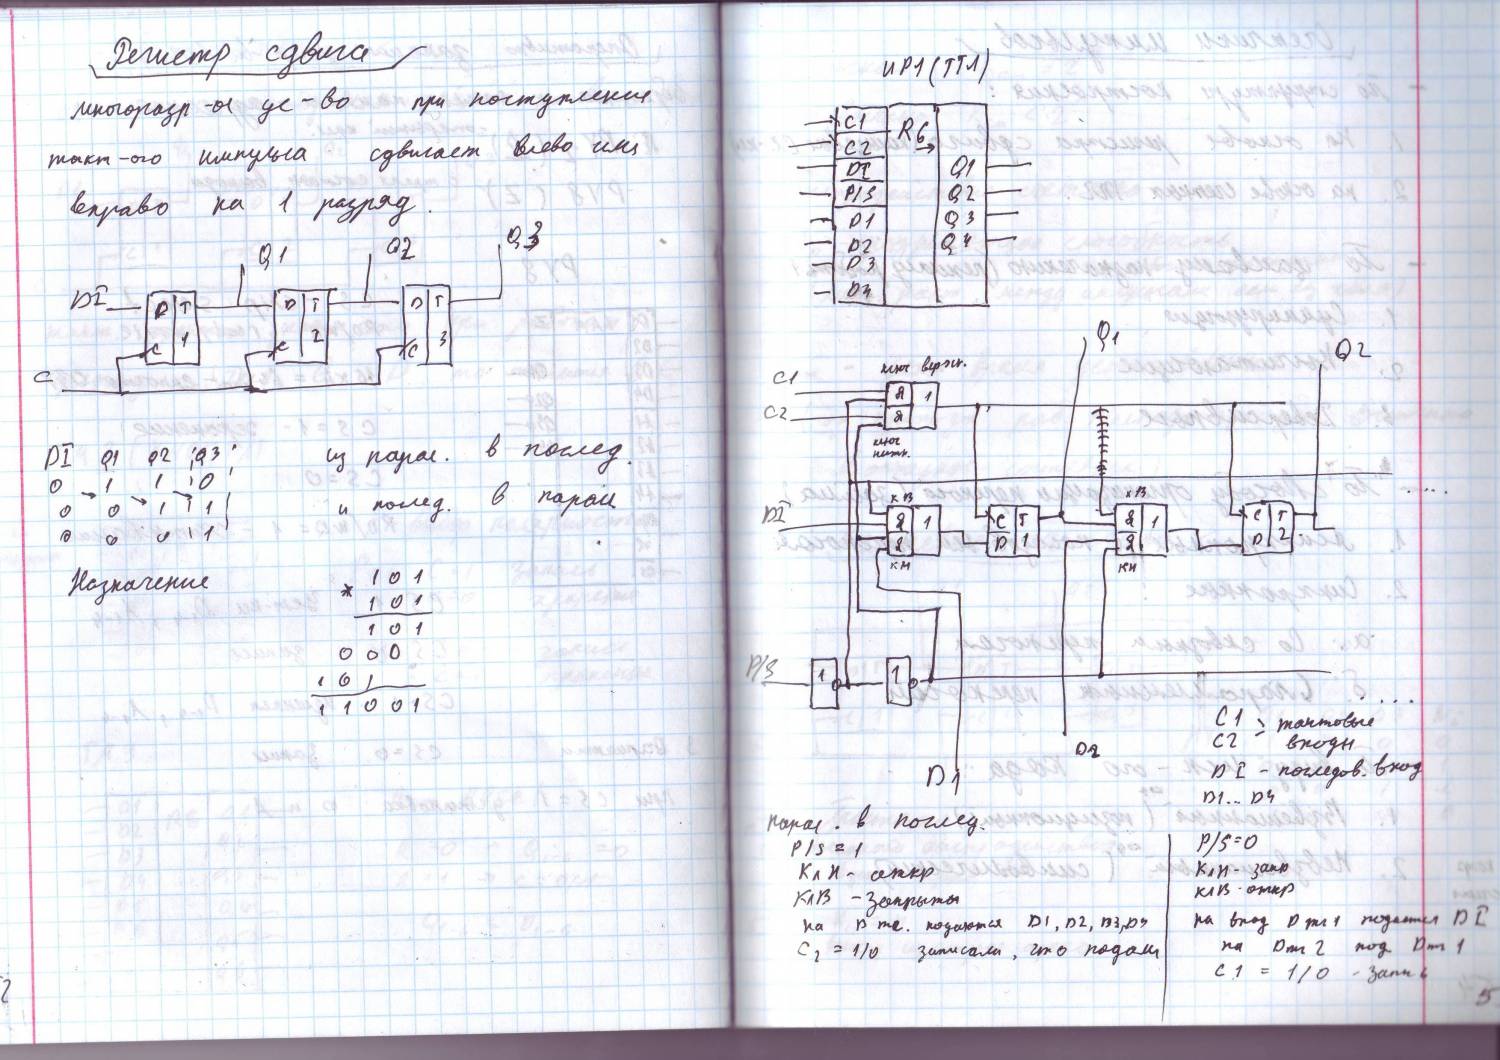 Регистр сдвига
многоразр-ое ус-во при поступлении
такт-ого импульса сдвигает влево или
вправо на 1 разряд.
Q1 Q2 Q3
DI D T D T D T
1 2 3
C C C
C
DI Q1 Q2 Q3
0 1 1 0
0 0 1 1
0 0 0 1
из парал. в послед.
и послед. в парал
Назначение
101
*
101
101
000
101
11001
ИР1 (ТТЛ)
C1 RG
C2
DI Q1
P/S Q2
D1 Q3
D2 Q4
D3
D4
Q1
Q2
ключ верхн.
C1 & 1
C2 &
ключ нижн.
кВ кВ
DI & 1 C T & 1 C T
& D 1 & D 2
кН кН
.....
P/S 1 1
....
D1
D2
C1 тактовые
C2 входы
DI - последов. вход
D1... D4
парал. в послед.
P/S = 1
КлН - откр
КлВ - закрыты
на D тг. подаются D1, D2, D3, D4
C2 = 1/0 записали, что подали
P/S = 0
КлН - закр
КлВ - откр
на вход Dтг1 подается DI
на Dтг2 под Dтг1
C1 = 1/0 - запись
5